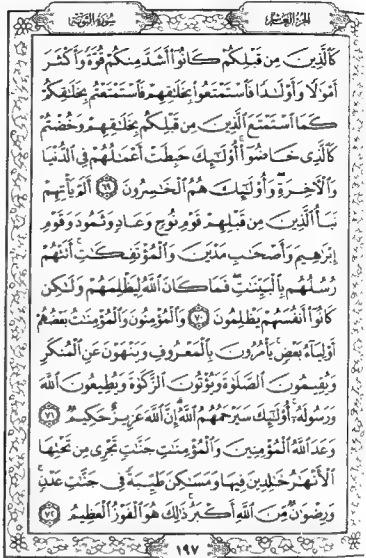 الجزء العاشر
سورة التوبة
كَٱلَّذِينَ مِن قَبْلِكُمْ كَانُوٓا۟ أَشَدَّ مِنكُمْ قُوَّةً وَأَكْثَرَ
أَمْوَٰلًا وَأَوْلَٰدًا فَٱسْتَمْتَعُوا۟ بِخَلَٰقِهِمْ فَٱسْتَمْتَعْتُم بِخَلَٰقِكُمْ
كَمَا ٱسْتَمْتَعَ ٱلَّذِينَ مِن قَبْلِكُم بِخَلَٰقِهِمْ وَخُضْتُمْ
كَٱلَّذِى خَاضُوٓا۟ أُو۟لَٰٓئِكَ حَبِطَتْ أَعْمَٰلُهُمْ فِى ٱلدُّنْيَا
وَٱلْأَخِرَةِ وَأُو۟لَٰٓئِكَ هُمُ ٱلْخَٰسِرُونَ ٦٩ أَلَمْ يَأْتِهِمْ
نَبَأُ ٱلَّذِينَ مِن قَبْلِهِمْ قَوْمِ نُوحٍ وَعَادٍ وَثَمُودَ وَقَوْمِ
إِبْرَٰهِيمَ وَأَصْحَٰبِ مَدْيَنَ وَٱلْمُؤْتَفِكَٰتِ أَتَتْهُمْ
رُسُلُهُم بِٱلْبَيِّنَٰتِ فَمَا كَانَ ٱللَّهُ لِيَظْلِمَهُمْ وَلَٰكِن
كَانُوٓا۟ أَنفُسَهُمْ يَظْلِمُونَ ٧٠ وَٱلْمُؤْمِنُونَ وَٱلْمُؤْمِنَٰتُ بَعْضُهُمْ
أَوْلِيَآءُ بَعْضٍ يَأْمُرُونَ بِٱلْمَعْرُوفِ وَيَنْهَوْنَ عَنِ ٱلْمُنكَرِ
وَيُقِيمُونَ ٱلصَّلَوٰةَ وَيُؤْتُونَ ٱلزَّكَوٰةَ وَيُطِيعُونَ ٱللَّهَ
وَرَسُولَهُۥٓ أُو۟لَٰٓئِكَ سَيَرْحَمُهُمُ ٱللَّهُ إِنَّ ٱللَّهَ عَزِيزٌ حَكِيمٌ ٧١
وَعَدَ ٱللَّهُ ٱلْمُؤْمِنِينَ وَٱلْمُؤْمِنَٰتِ جَنَّٰتٍ تَجْرِى مِن تَحْتِهَا
ٱلْأَنْهَٰرُ خَٰلِدِينَ فِيهَا وَمَسَٰكِنَ طَيِّبَةً فِى جَنَّٰتِ عَدْنٍ
وَرِضْوَٰنٌ مِّنَ ٱللَّهِ أَكْبَرُ ذَٰلِكَ هُوَ ٱلْفَوْزُ ٱلْعَظِيمُ ٧٢
١٩٧